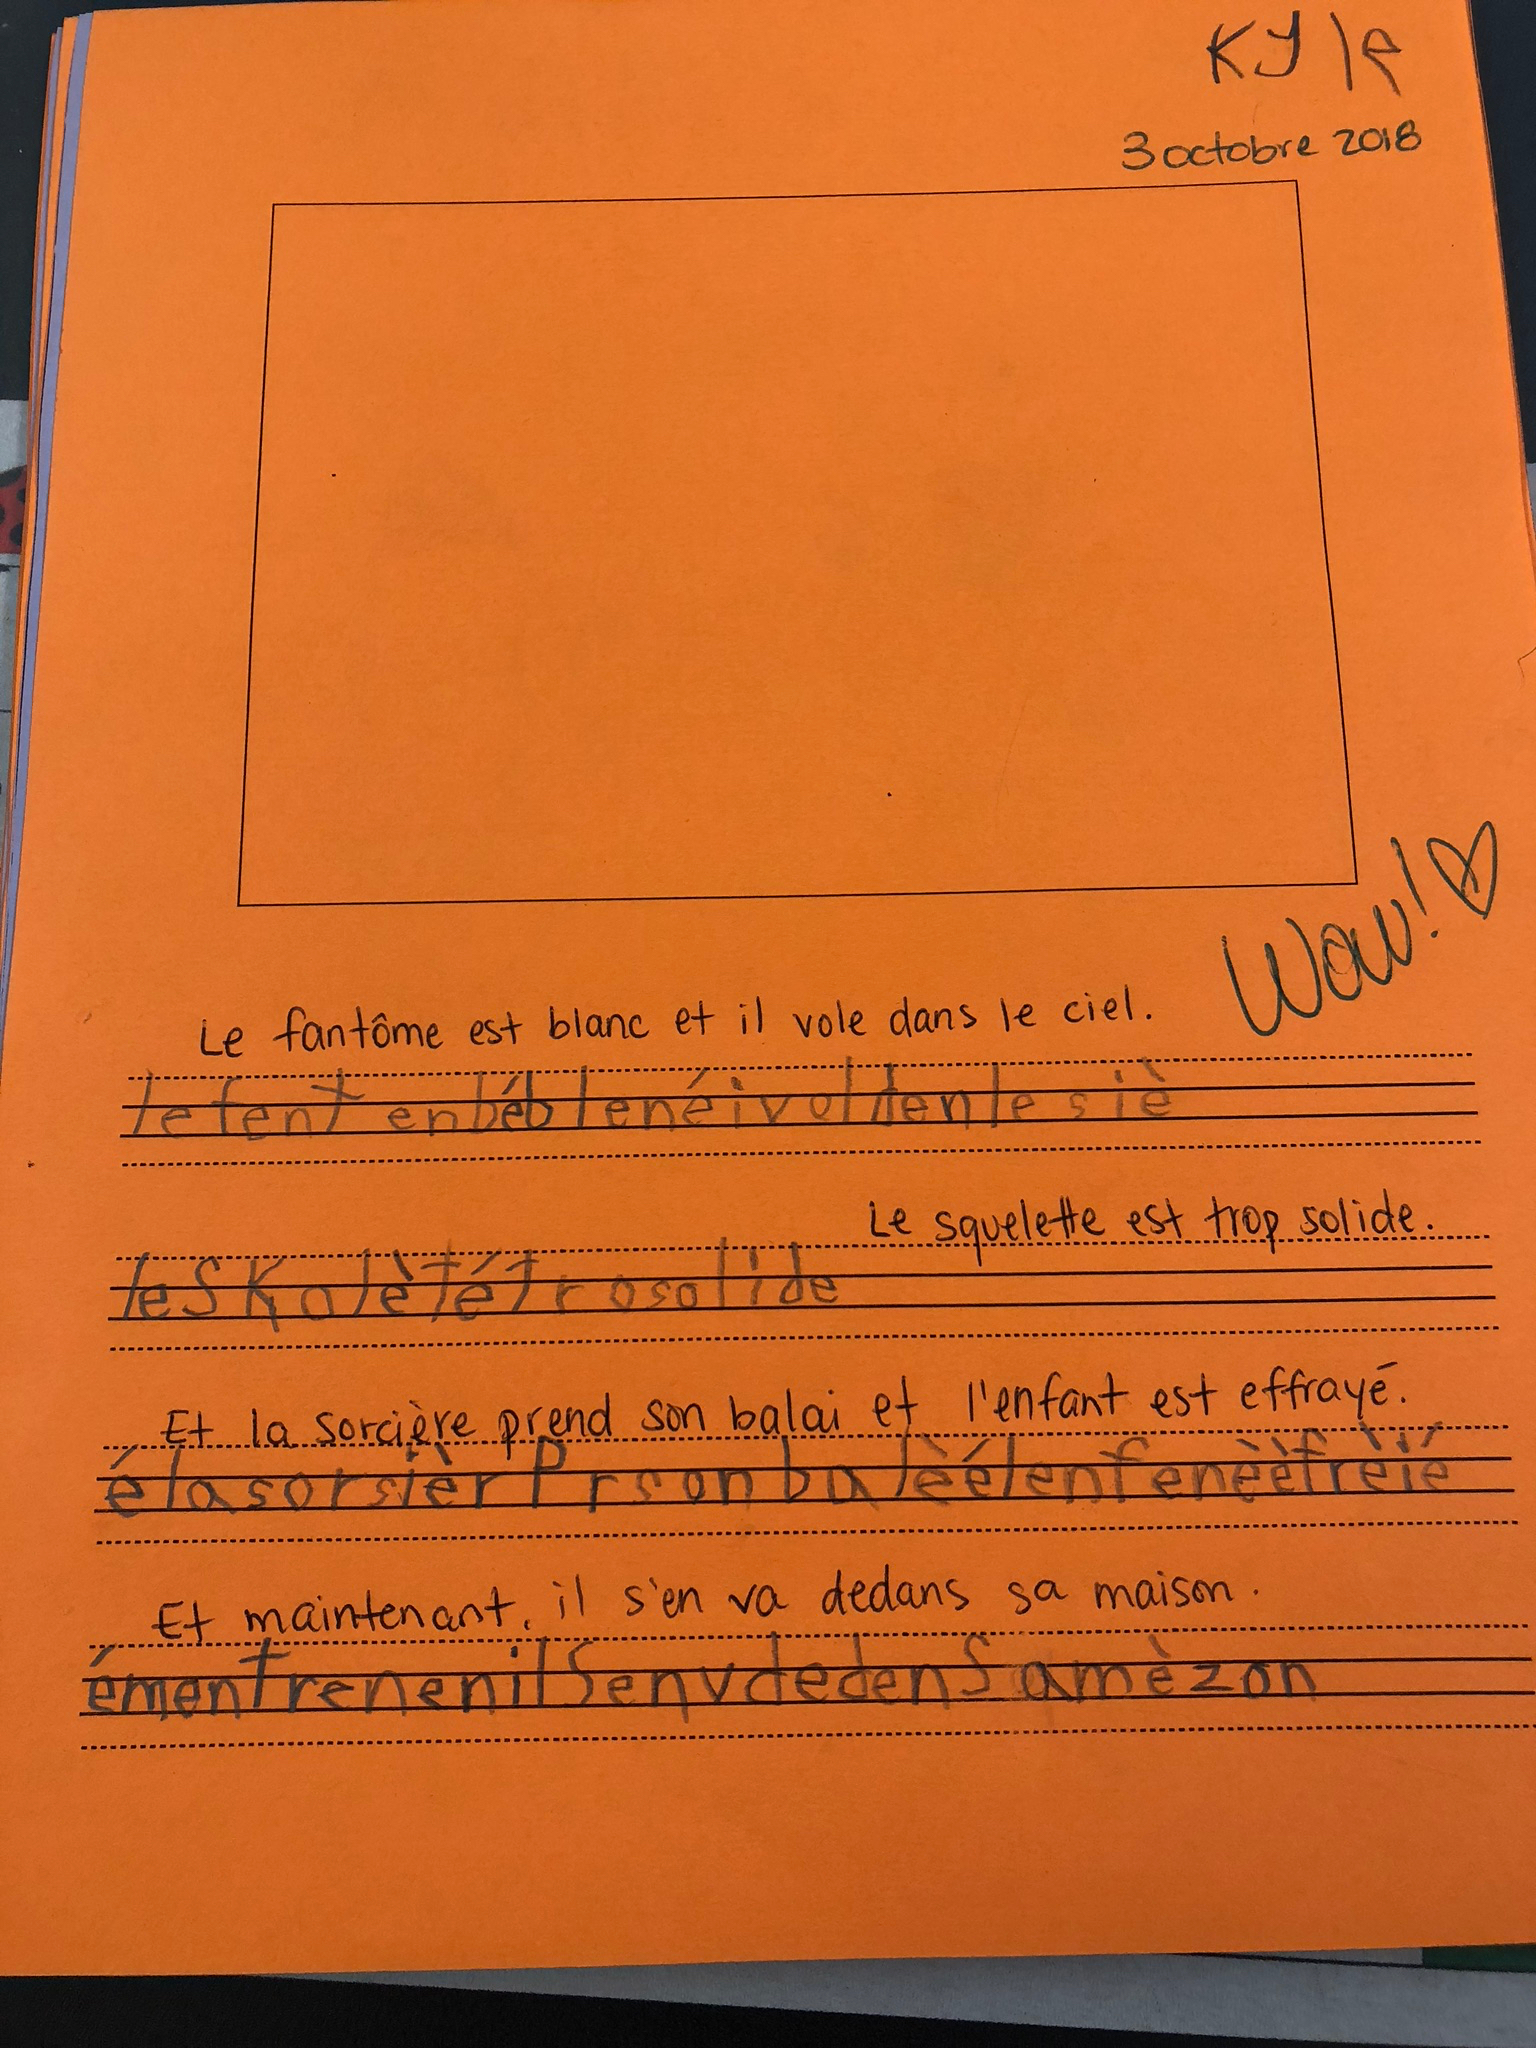 Kyle
3 octobre 2018
Wow! ♡
Le fantôme est blanc et il vole dans le ciel.
le fent enbéblenéivoldenlesiè
Le squelette est trop solide.
leSKolètétrosolide
Et la sorcière prend son balai et l'enfant est effrayé.
élasorsièrPrsonbalèélenfenèèfrèié
Et maintenant, il s'en va dedans sa maison.
émentrenenilSenvdedenSamèzon